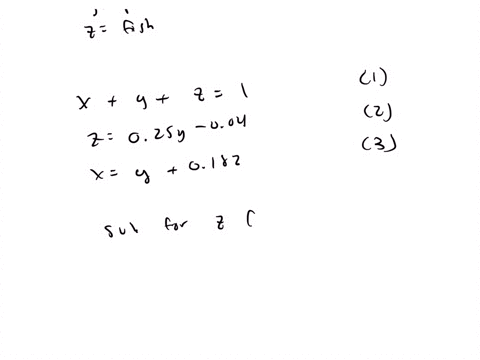 z = fish
x + y + z = 1 (1)
z = 0.25y - 0.04 (2)
x = y + 0.182 (3)
sub for z (